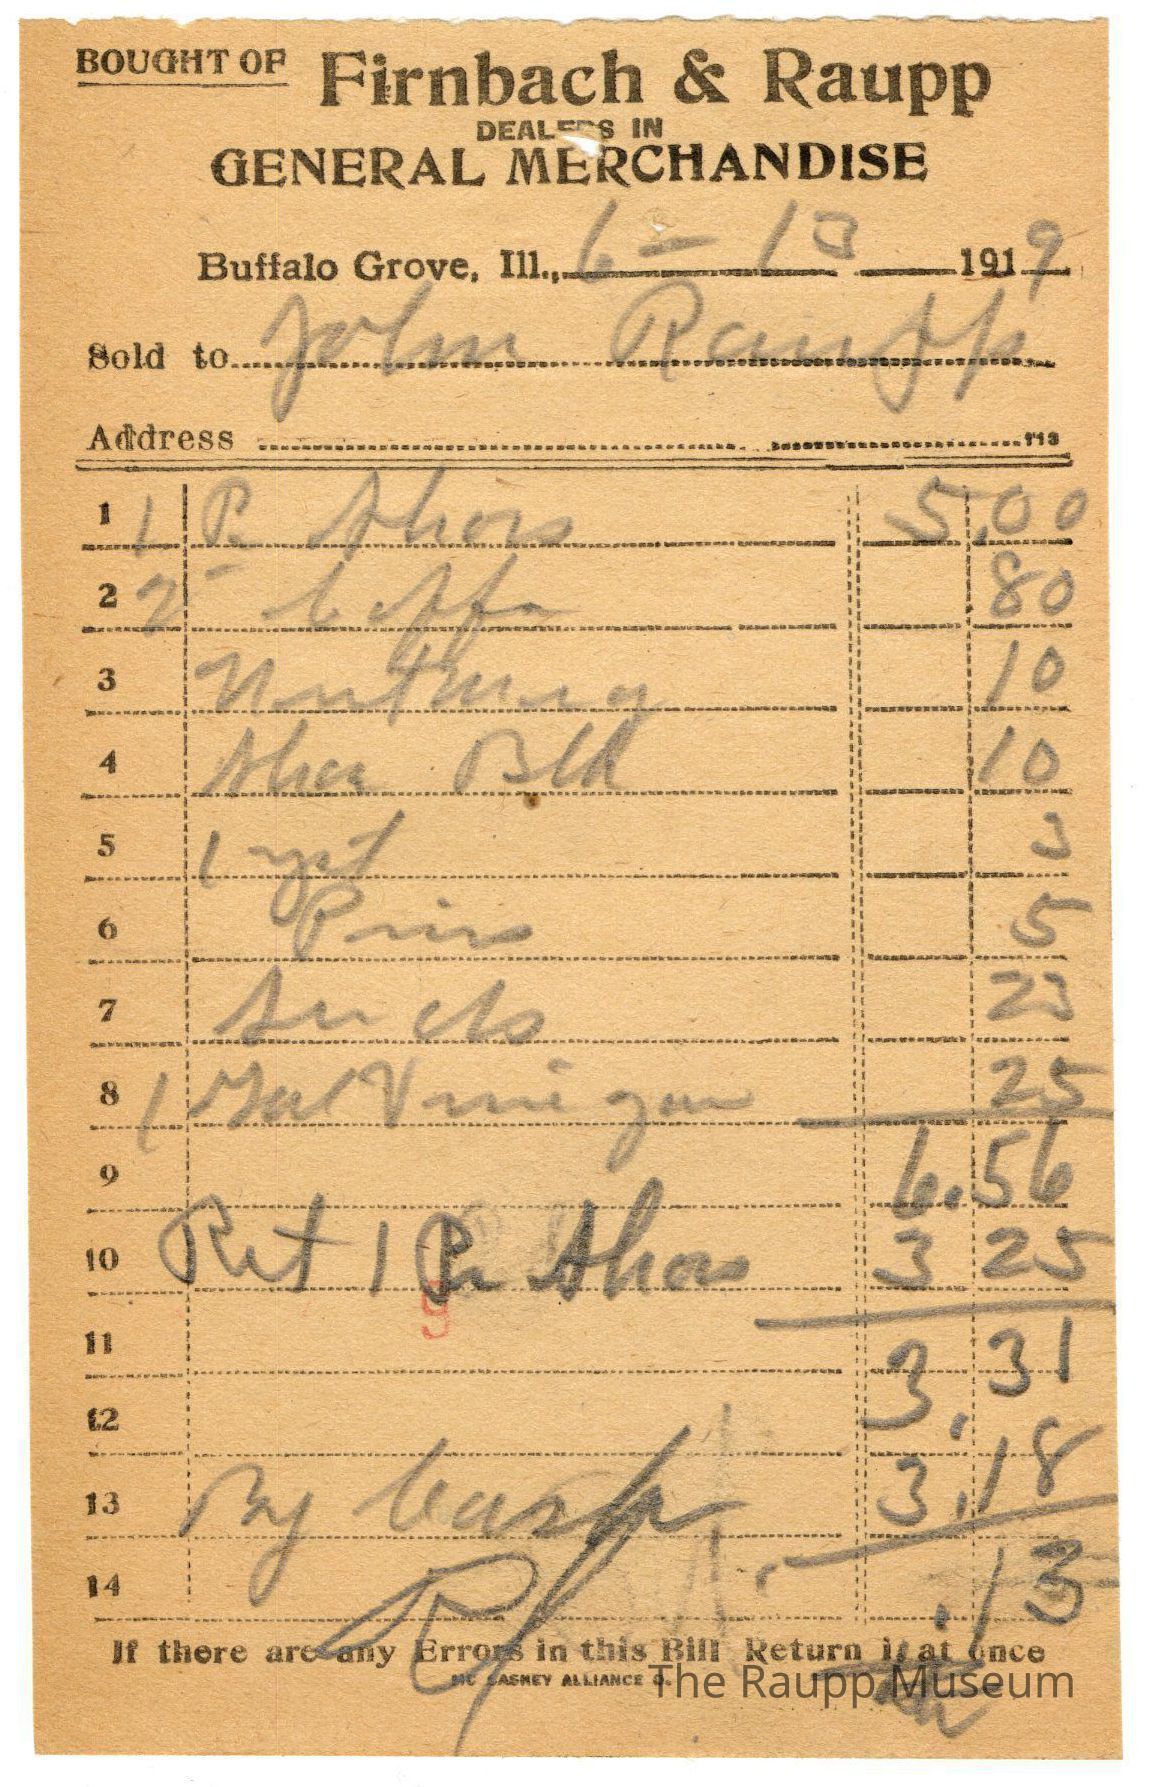 BOUGHT OF Firnbach & Raupp
DEALERS IN
GENERAL MERCHANDISE
Buffalo Grove, Ill., 6 – 13 1919
Sold to John Raupp
Address 113
1 1 Pr Shoes 5.00
2 2 – Coffe 80
3 Nutmeg 10
4 Shoe Blk 10
5 1 yst 3
6 Pins 5
7 23
8 1 Gal Vinegar 25
9 6.56
10 Ret 1 Pr Shoes 3 25
9
11 3.31
12
13 By Cash 3.18
14 .13
If there are any Errors in this Bill Return it at once
The Raupp Museum